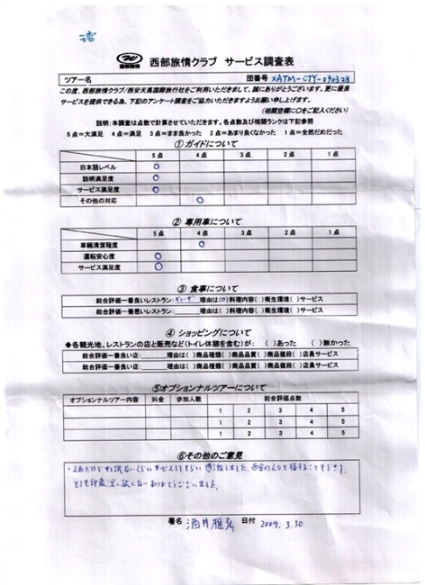 西部旅情クラブ サービス調査表
ツアー名 団番号 XATM-CTY-090328
この度、西部旅情クラブ/西安天馬国際旅行社をご利用いただきまして、誠にありがとうございます。更に優良
サービスを提供できる為、下記のアンケート調査をご協力いただきますようお願い申し上げます。
(相関空欄に○をご記入ください)
説明:本調査は点数で計算させていただきます。各点数及び相関ランクは下記参照
5点=大満足 4点=満足 3点=まま良かった 2点=あまり良くなかった 1点=全然だめだった
①ガイドについて
5点 4点 3点 2点 1点
日本語レベル ○
説明満足度 ○
サービス満足度 ○
その他の対応 ○
② 専用車について
5点 4点 3点 2点 1点
車輛清潔程度 ○
運転安心度 ○
サービス満足度 ○
③ 食事について
総合評価一番良いレストラン: 理由は(○)料理内容( )衛生環境( )サービス
総合評価一番悪いレストラン: 理由は( )料理内容( )衛生環境( )サービス
④ ショッピングについて
◆各観光地、レストランの店と販売など(トイレ休憩を含む)が: ( )あった ( )無かった
総合評価一番良い店: 理由は( )商品種類( )商品品質( )商品値段( )店員サービス
総合評価一番悪い店: 理由は( )商品種類( )商品品質( )商品値段( )店員サービス
⑤オプションナルツアーについて
オプションナルツアー内容 料金 参加人数 総合評価点数
1 2 3 4 5
1 2 3 4 5
1 2 3 4 5
⑥その他のご意見
署名 酒井雅弘 日付 2009. 3.30